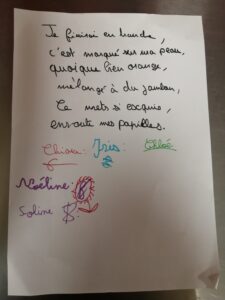 Je finirai en
c'est marqué sur ma peau,
quoique bien orange,
mélangé à du jambon,
Ce mets si exquis,
envoute mes papilles.
Chiara: Iris: Chloé
Noéline:
Soline: